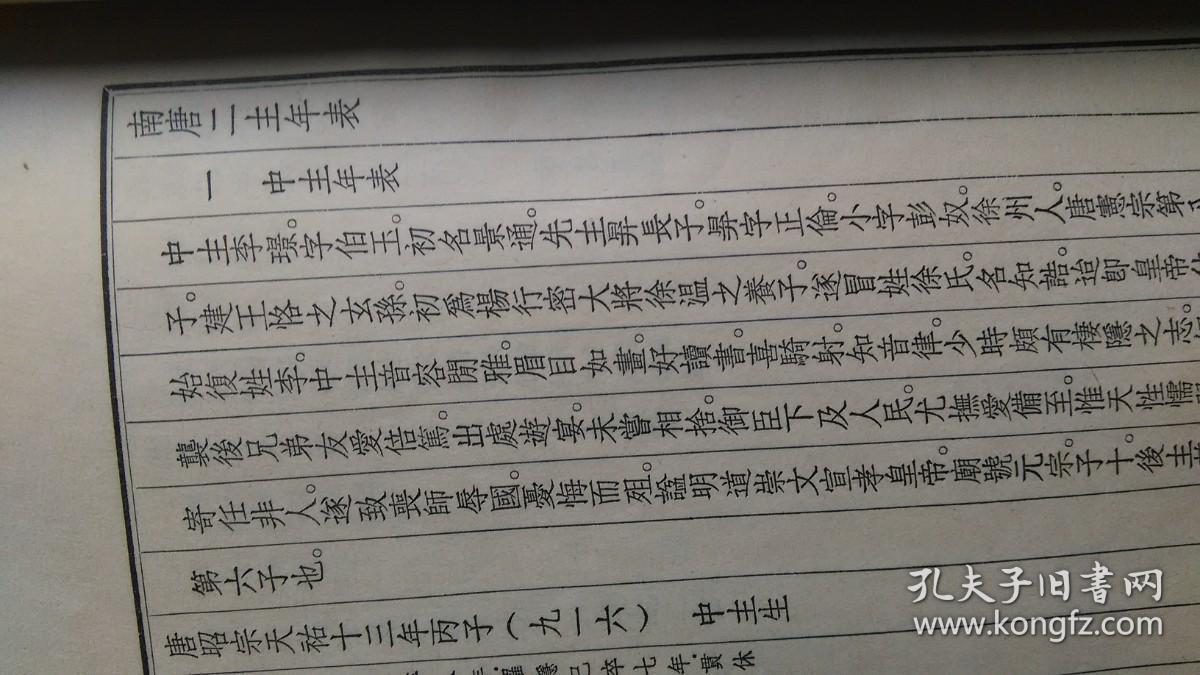 南唐二主年表
一　中主年表
中主李璟。字伯玉。初名景通。先主昪長子。昪字正倫。小字彭奴。徐州人。唐憲宗第
子。建王恪之玄孫。初爲楊行密大將徐溫之養子。遂冒姓徐氏。名知誥。迨即皇帝
始復姓李。中主音容閒雅。眉目如畫。好讀書。喜騎射。知音律。少時頗有棲隱之志。
襲後。兄弟友愛倍篤。出處遊宴。未嘗相捨。御臣下及人民。尤撫愛備至。惟天性懦
寄任非人。遂致喪師辱國。憂悔而殂。諡明道崇文宣孝皇帝。廟號元宗。子十。後主
第六子也。
唐昭宗天祐十三年丙子（九一六）　中主生
羅隱已卒七年·貫休
孔夫子旧书网
www.kongfz.com